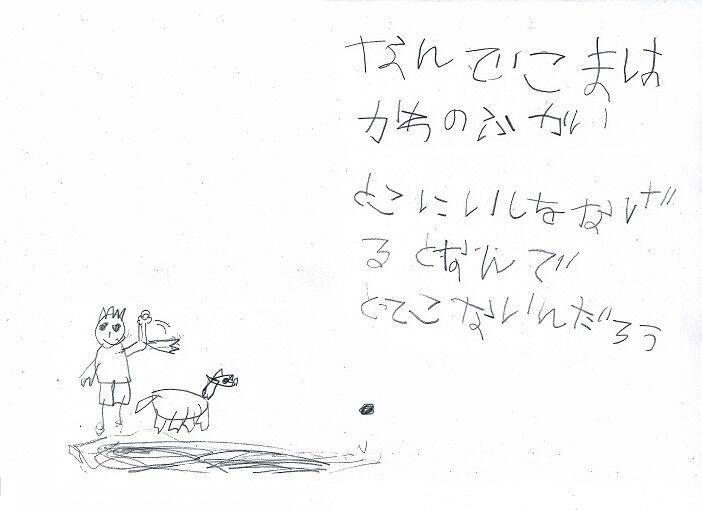 なんでこまは
かわのふかい
とこにいしをなげ
るとなんで
とてこないんだろう